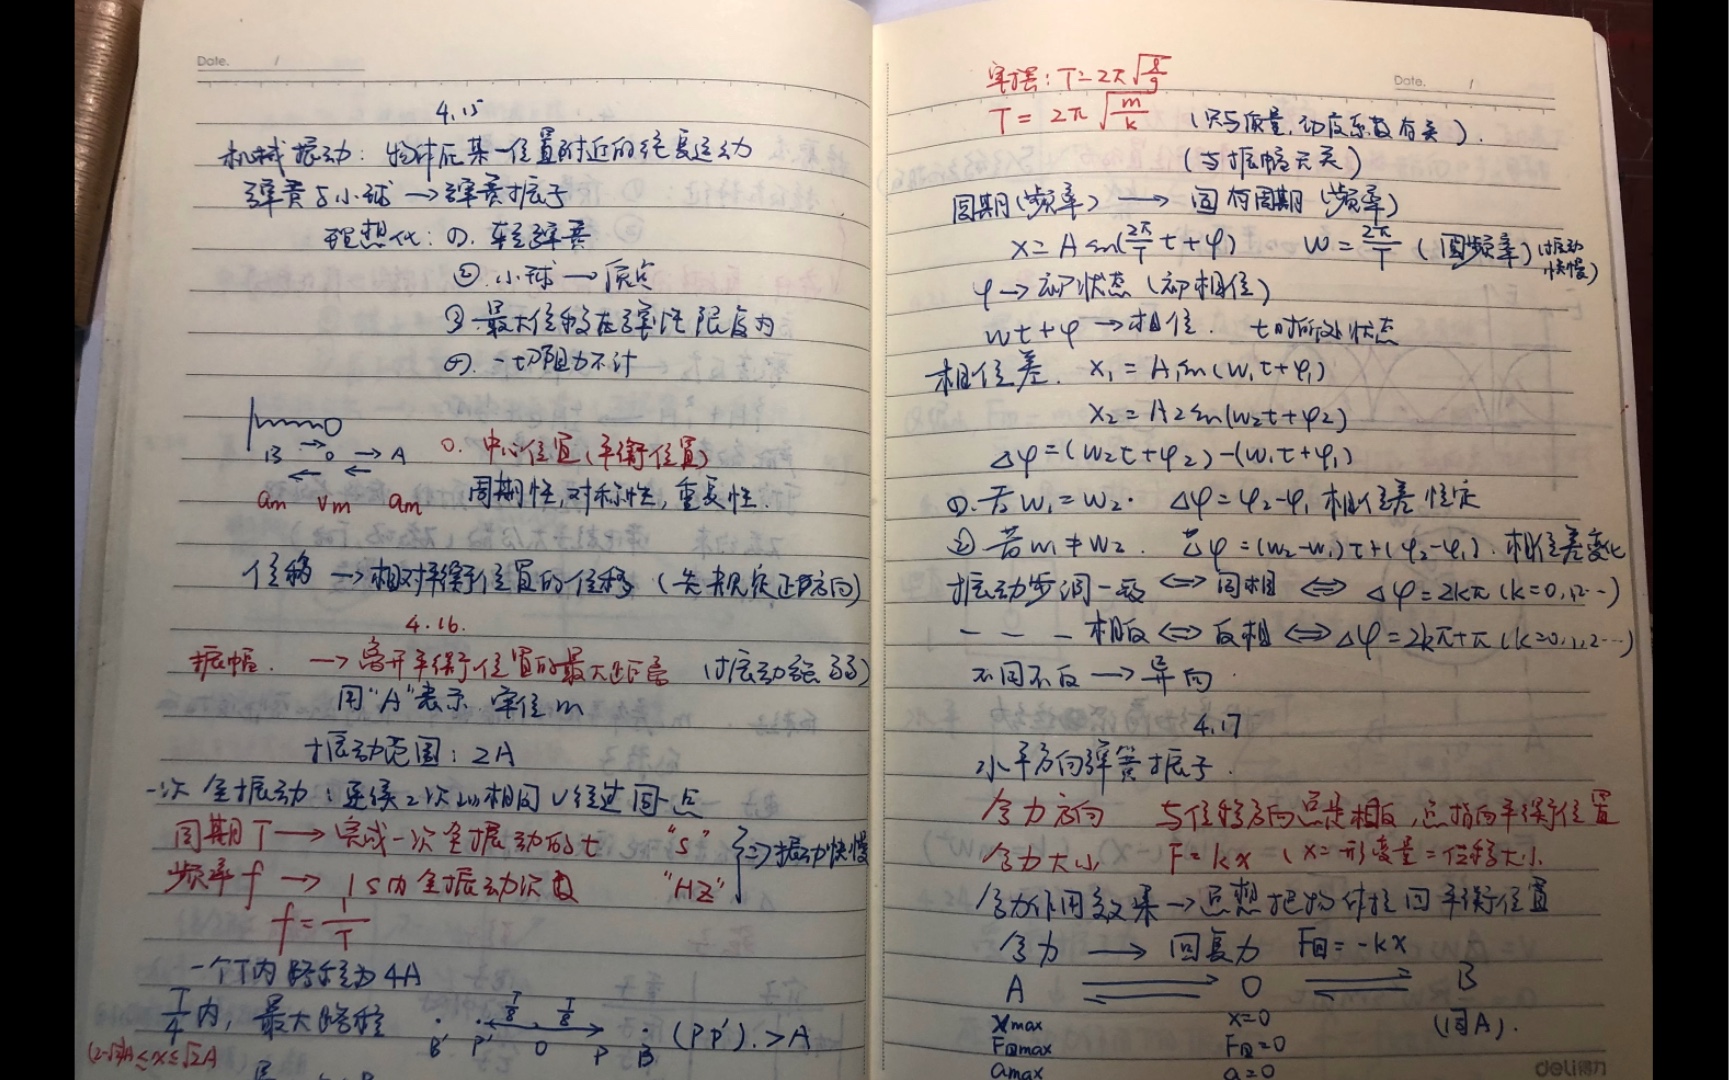 Date. /
4.15
机械振动：物体在某一位置附近的往复运动
弹簧与小球→弹簧振子
理想化：①. 轻弹簧
②. 小球→质点
③. 最大位移在弹性限度内
④. 一切阻力不计
B → 0 → A
← ←
0. 中心位置（平衡位置）
am vm am
周期性,对称性,重复性.
位移→相对平衡位置的位移（先规定正方向）
4.16.
振幅. →离开平衡位置的最大距离（振动强弱）
用"A"表示 单位m
振动范围：2A
一次全振动：连续2次以相同V经过同一点
周期T→完成一次全振动的t "s"
频率f → 1s内全振动次数 "HZ"
⇒振动快慢
f=1/T
一个T内路程为4A
T/4内, 最大路程
B' P' T/8 O T/8 P B (PP').>A
(2-√2)A≤x≤√2A
Date. /
单摆：T=2π√(l/g)
T=2π√(m/k) （只与质量,劲度系数有关）.
（与振幅无关）
周期（频率）→ 固有周期（频率）
x=Asin(2π/T t+φ) W=2π/T（圆频率）（振动快慢）
φ→初状态（初相位）
wt+φ→相位. t时所处状态
相位差. x₁=A₁sin(w₁t+φ₁)
x₂=A2sin(w₂t+φ2)
△φ=(w₂t+φ₂)-(w₁t+φ₁)
①.若w₁=w₂. △φ=φ₂-φ₁ 相位差恒定
②若w₁≠w₂. △φ=(w₂-w₁)t+(φ₂-φ₁). 相位差变化
振动步调一致⇔同相⇔△φ=2kπ(k=0,1,2…)
— — — 相反⇔反相⇔△φ=2kπ+π(k=0,1,2…)
不同不反→异向.
4.17
水平方向弹簧振子.
合力方向 与位移方向总是相反,总指向平衡位置
合力大小 F=kx（x=形变量=位移大小
合力作用效果→总想把物体拉回平衡位置
合力→回复力 F回=-kx
A ⇌ O ⇌ B
xmax x=0 (同A).
F回max F回=0
amax a=0
deli得力